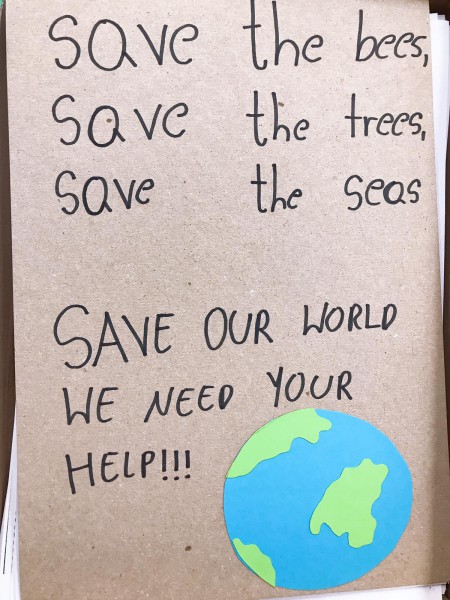 save the bees,
save the trees,
save the seas
SAVE OUR WORLD
WE NEED YOUR
HELP!!!